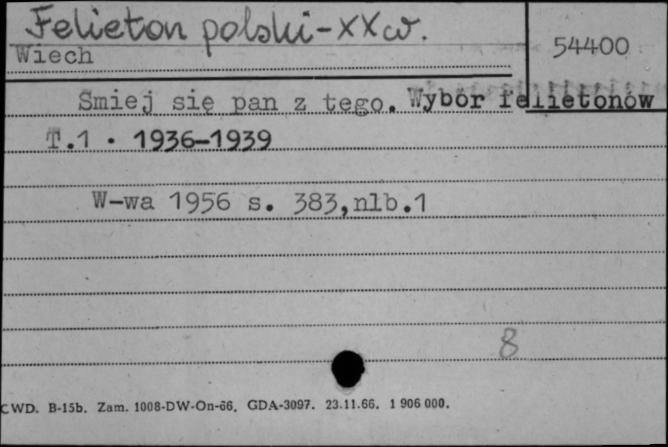 Felieton polski - XX w.
54400
Wiech
Smiej się pan z tego. Wybór felietonów
T.1 . 1936-1939
W-wa 1956 s. 383,nlb.1
8
CWD. B-15b. Zam. 1008-DW-On-66. GDA-3097. 23.11.66. 1 906 000.